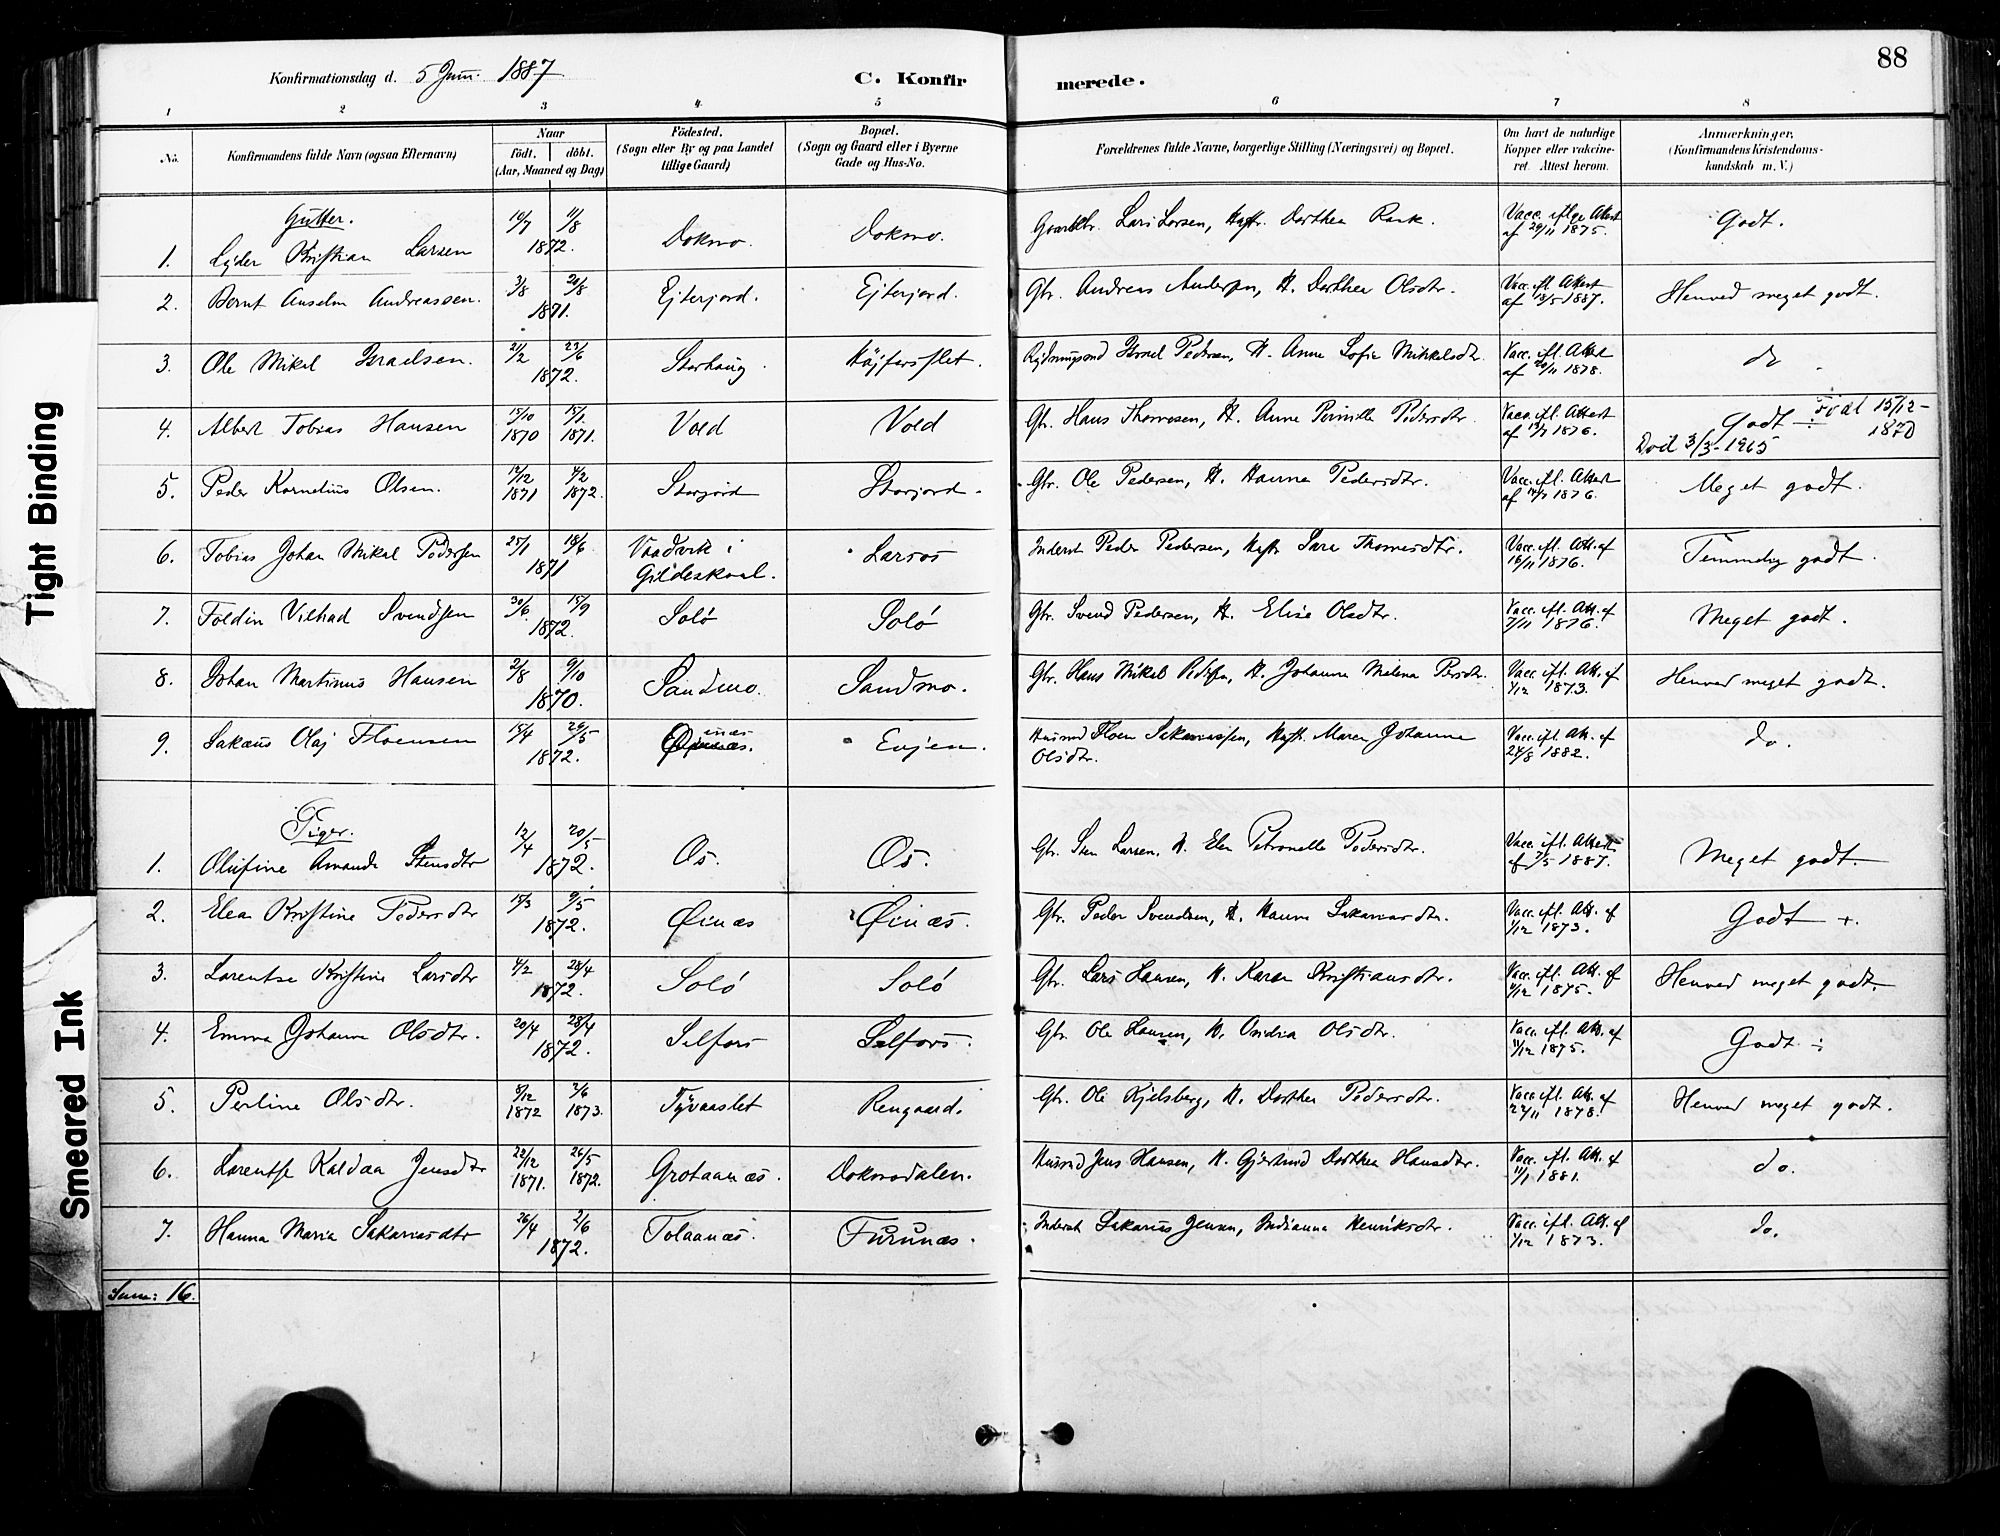 88
Konfirmationsdag d. 5 Juni. 1887
C. Konfirmerede.
1 2 3 4 5 6 7 8
No. Konfirmandens fulde Navn (ogsaa Efternavn) Naar födt. döbt. (Aar, Maaned og Dag) Födested. (Sogn eller By og paa Landet tillige Gaard) Bopæl. (Sogn og Gaard eller i Byerne Gade og Hus-No. Forældrenes fulde Navne, borgerlige Stilling (Næringsvei) og Bopæl. Om havt de naturlige Kopper eller vakcineret. Attest herom. Anmærkninger. (Konfirmandens Kristendomskundskab m. V.)
Gutter.
1. Lyder Kristian Larsen 10/7 11/8 1872. Dokmo. Dokmo. Lars Larsen, Hustr. Dorthea Rask. Vacc. iflge Attest af 29/11 1875. Godt.
2. Bernt Anselm Andreassen. 3/8 20/8 1871. Ejterjord. Ejterjord. Gbr. Andreas Andersen, H. Dorthea Olsdtr. Vacc. ifl. Attest af 13/5 1887. Henved meget godt.
3. Ole Mikal Israelsen. 21/2 23/6 1872. Storhaug. Højforsflet. Israel Pedersen, H. Anne Sofie Mikkelsdtr. Vacc. ifl. Attest af 20/11 1878. do
4. Albert Tobias Hansen 15/10 1870 15/1 1871. Vold Vold Gbr. Hans Thomesen, H. Anne Pernille Pedersdtr. Vacc. ifl. Attest af 13/7 1876. Godt Född 15/12-1870
Död 3/3-1965
5. Peder Kornelius Olsen. 12/12 1871 4/2 1872. Storjord Storjord. Gbr. Ole Pedersen, H. Hanna Pedersdtr. Vacc. ifl. Attest af 14/7 1876. Meget godt.
6. Tobias Johan Mikal Pedersen 25/1 18/6 1871 Vaadvik i Gildeskaal. Larsos Inderst Peder Pedersen, Hustr. Sara Thomesdtr. Vacc. ifl. Att. af 16/11 1876. Temmelig godt.
7. Foldin Vilhad Svendsen 30/6 15/9 1872. Solö Solö Gbr. Svend Pedersen, H. Elise Olsdtr. Vacc. ifl. Att. af 7/11 1876. Meget godt.
8. Johan Martinus Hansen 2/8 9/10 1870. Sandmo. Sandmo. Gbr. Hans Mikal Pedersen, H. Johanna Malena Persdtr. Vacc. ifl. Att. af 1/12 1873. Henved meget godt.
9. Sakæus Olaj Floensen 15/4 26/5 1872. Øinæs. Evjen. Husmd Floen Sakariassen, Hustr. Maren Johanna Olsdtr. Vacc. ifl. Att. af 24/8 1882. do.
Piger.
1. Olufine Amanda Stensdtr 12/4 20/5 1872. Os. Os. Gbr. Sten Larsen, H. Elen Petronelle Pedersdtr. Vacc. ifl. Attest af 7/5 1887. Meget godt.
2. Elea Kristine Pedersdtr 15/3 9/5 1872. Øinæs Øinæs. Gbr. Peder Svendsen, H. Hanna Sakariasdtr. Vacc. ifl. Att. af 1/12 1873. Godt +.
3. Larentse Kristine Larsdtr 4/2 28/4 1872. Solö Solö Gbr. Lars Hansen, H. Karen Kristiansdtr. Vacc. ifl. Att. af 4/12 1875. Henved meget godt.
4. Emma Johanna Olsdtr. 20/4 28/4 1872. Selfors Selfors. Gbr. Ole Hansen, H. Olsdtr. Vacc. ifl. Att. af 11/12 1875. Godt ÷
5. Perline Olsdtr. 8/12 1872 2/6 1873. Tyvaaslet Rengaard. Gbr. Ole Kjelsberg, H. Dorthea Pedersdtr. Vacc. ifl. Att. af 22/11 1878. Henved meget godt.
6. Larentse Kaldaa Jensdtr 22/12 1871. 26/5 1872. Grotaanæs. Dokmodalen. Husmd Jens Hansen, H. Gjertrud Dorthea Hansdtr. Vacc. ifl. Att. af 11/1 1881. do.
7. Hanna Maria Sakariasdtr 26/4 2/6 1872. Tolaanæs. Furunæs. Inderst Sakarias Jensen, Indianna Henriksdtr. Vacc. ifl. Att. af 1/12 1873. do.
Sum: 16.
Tight Binding
Smeared Ink